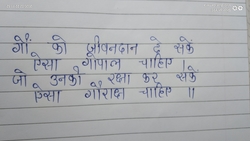 गौ को जीवनदान दे सकें
ऐसा गोपाल चाहिए ।
जो उनकी रक्षा कर सकें
ऐसा गौराक्ष चाहिए ॥